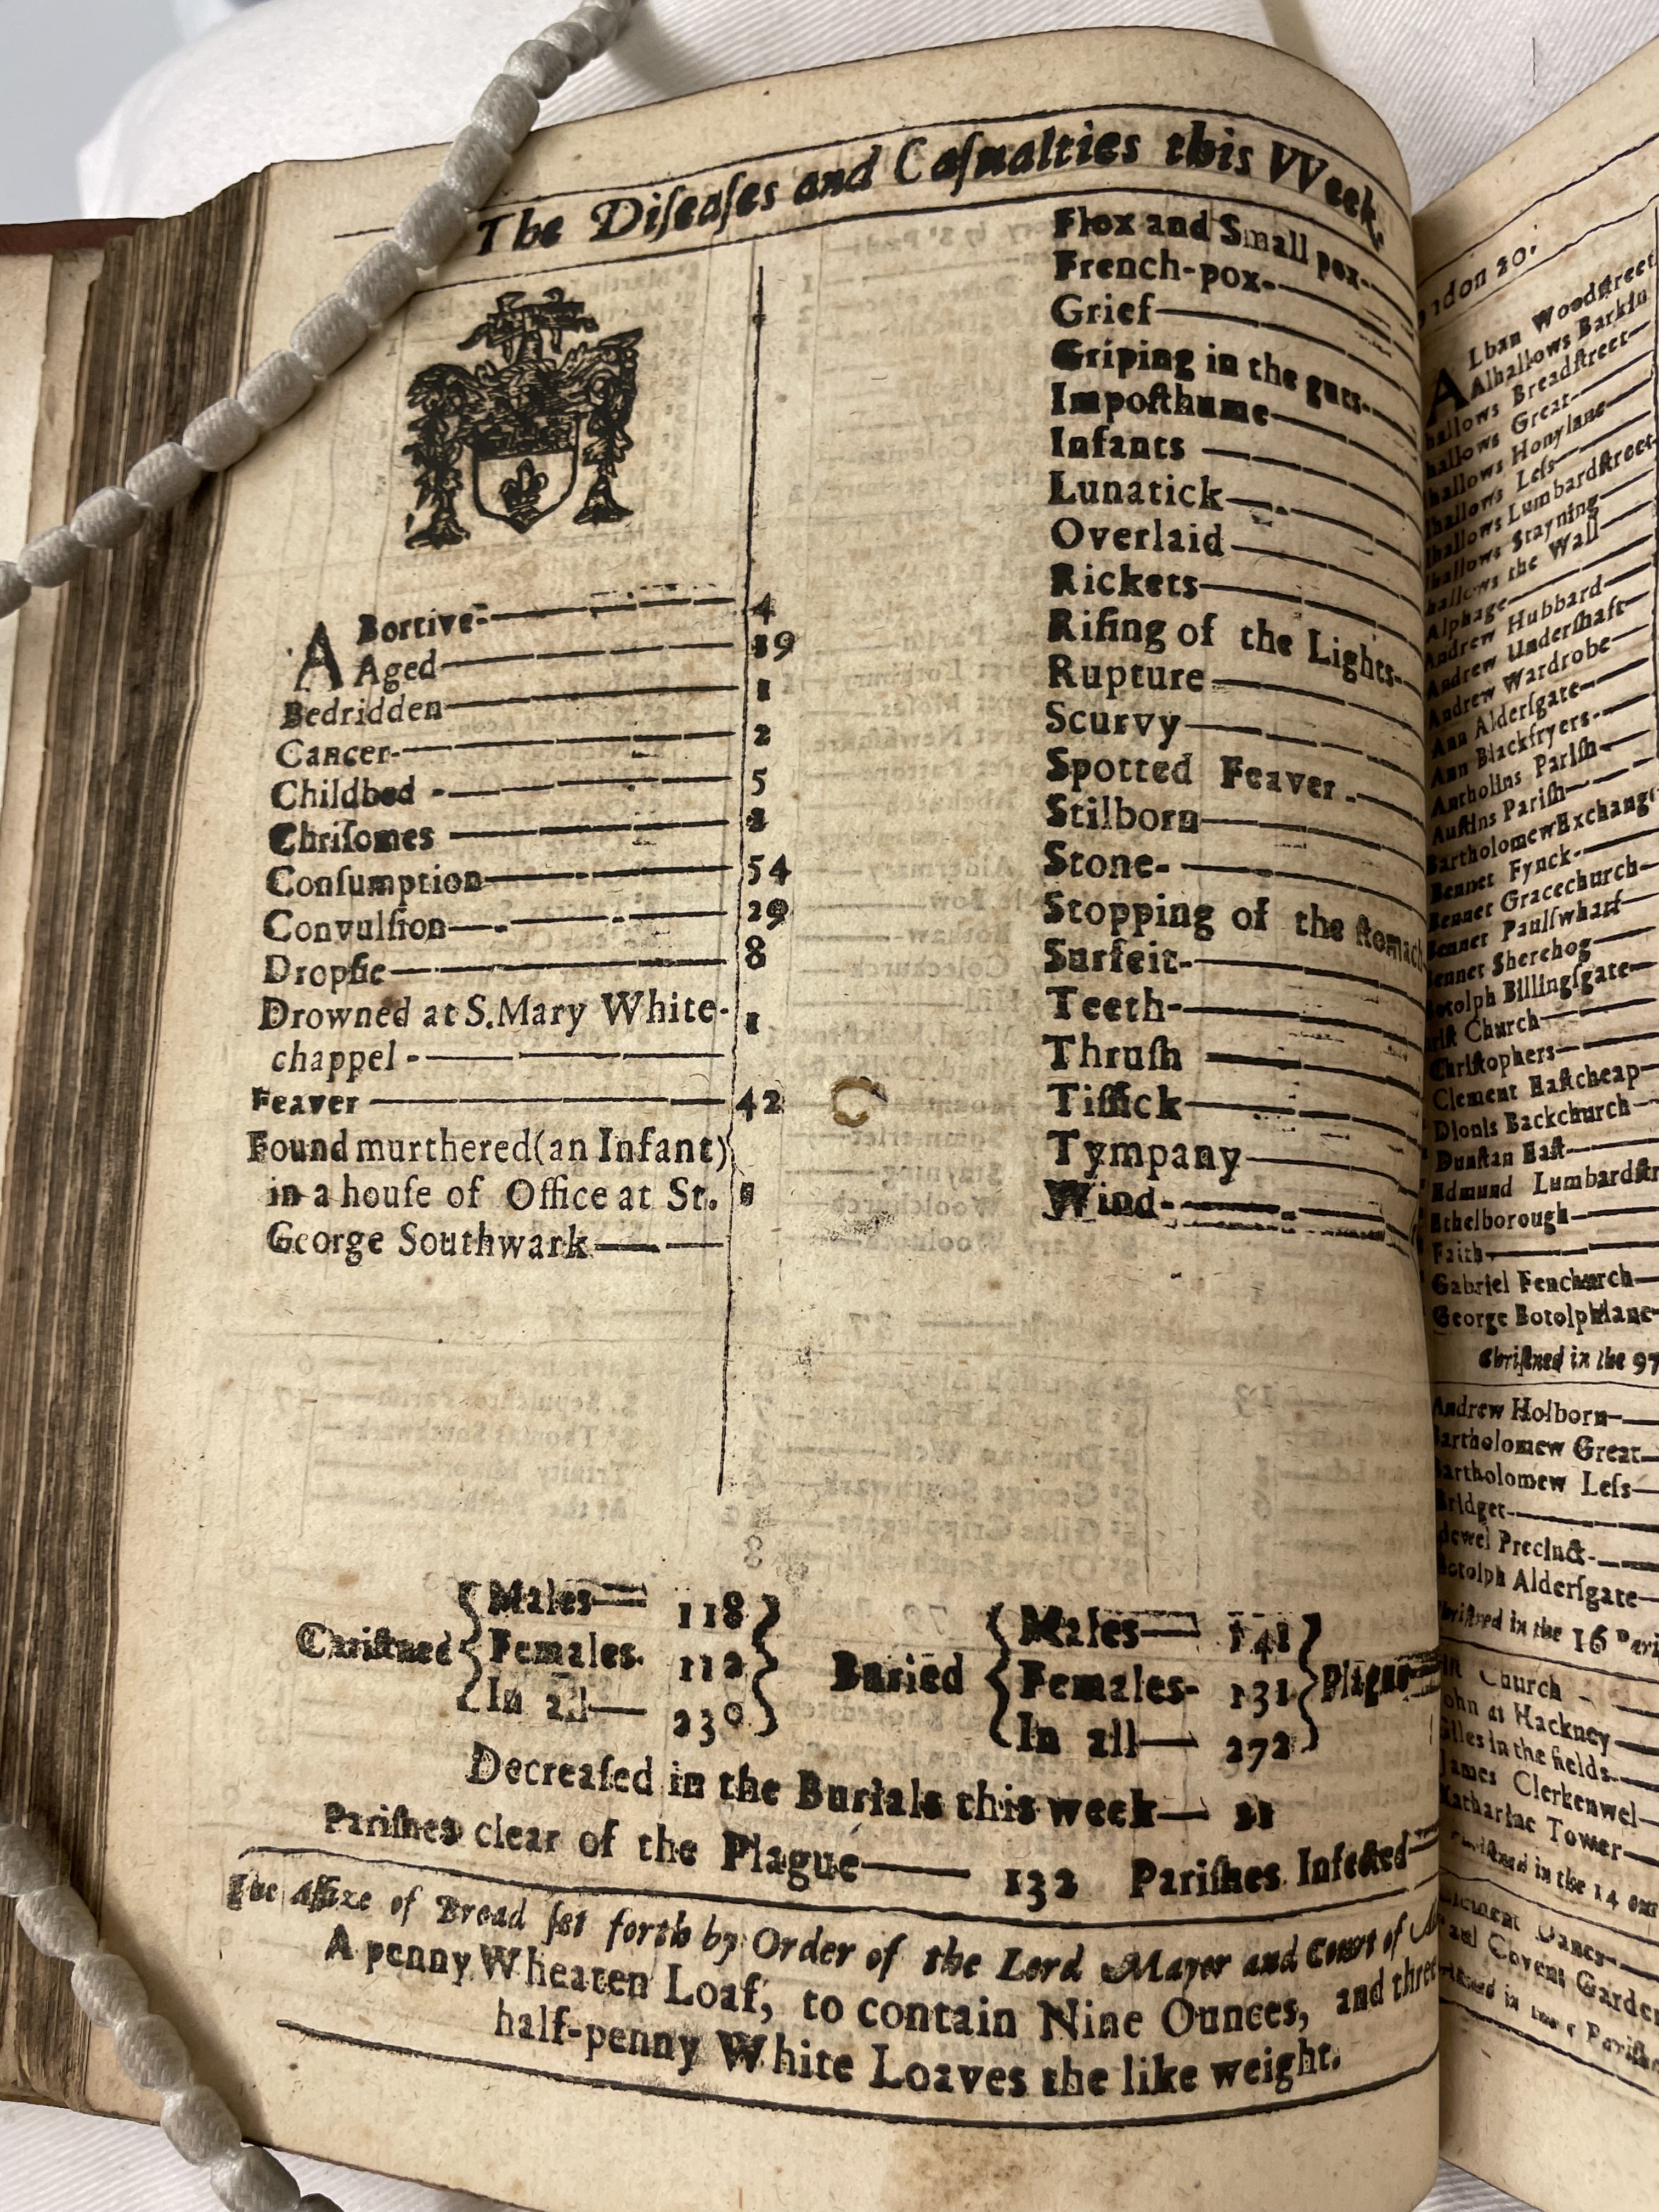 The Diſeaſes and Caſualties this VVeek.
ABortive- 4
Aged 19
Bedridden 1
Cancer- 2
Childbed - 5
Chriſomes
Conſumption 54
Convulſion 29
Dropſie 8
Drowned at S. Mary White-
chappel - 1
Feaver 42
Found murthered (an Infant)
in a houſe of Office at St. 1
George Southwark
Flox and Small pox-
French-pox-
Grief
Griping in the guts-
Impoſthume
Infants
Lunatick
Overlaid
Rickets
Riſing of the Lights-
Rupture
Scurvy
Spotted Feaver
Stilborn
Stone-
Stopping of the ſtomach
Surfeit-
Teeth-
Thruſh
Tiſſick
Tympany
Wind-
Males 118
Chriſtned Females. 112
In all 230
Males 141
Buried Females- 131 Plague
In all 272
Decreaſed in the Burials this week—
Pariſhes clear of the Plague— 132 Pariſhes Infected
The Aſſize of Bread ſet forth by Order of the Lord Mayor and Court of
A penny Wheaten Loaf, to contain Nine Ounces, and three
half-penny White Loaves the like weight.
ndon 20.
ALban Woodſtreet
Alhallows Barkin
hallows Breadſtreet
hallows Great
hallows Honylane
lhallows Leſs
lhallows Lumbardſtreet
lhallows Stayning
hallows the Wall
Alphage
Andrew Hubbard
Andrew Underſhaft
Andrew Wardrobe
Ann Alderſgate
Ann Blackfryers
Antholins Pariſh
Auſtins Pariſh
Bartholomew Exchange
Bennet Fynck-
Bennet Gracechurch
Bennet Paulſwharf
ennet Sherehog
otolph Billingſgate
riſt Church
Chriſtophers
Clement Eaſtcheap
Dionis Backchurch
Dunſtan Eaſt
Edmund Lumbardſtr
Ethelborough
Faith
Gabriel Fenchurch
George Botolphlane
Chriſtned in the 97
Andrew Holborn
artholomew Great
artholomew Leſs
Bridget
dewel Precinct-
otolph Alderſgate
hriſtned in the 16 Pari
Church
ohn at Hackney
Giles in the fields
James Clerkenwel
Katharine Tower
in the 14 out
Clement Danes
aul Covent Garden